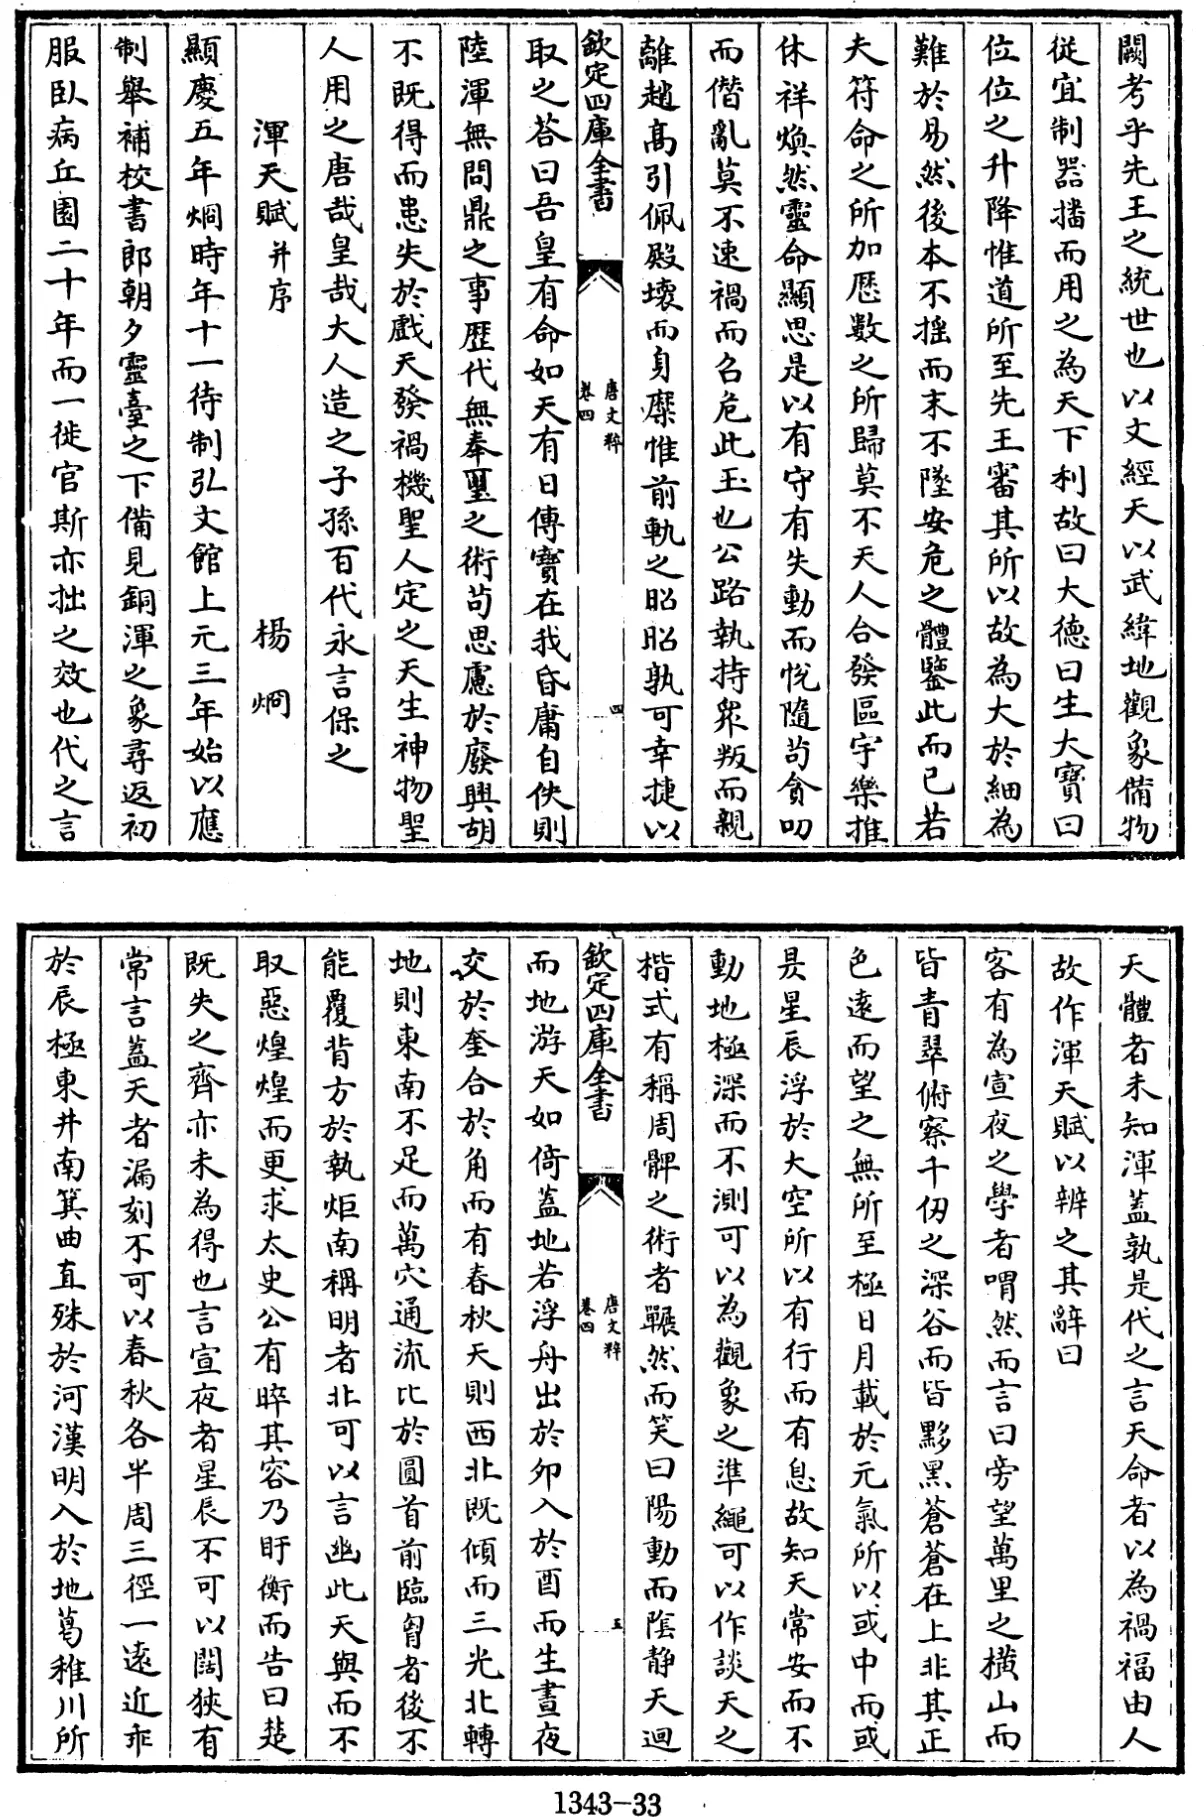 闕考乎先王之統世也以文經天以武緯地觀象備物
從宜制器播而用之為天下利故曰大德曰生大寶曰
位位之升降惟道所至先王審其所以故為大於細為
難於易然後本不揺而末不墜安危之體鑒此而已若
夫符命之所加厯數之所歸莫不天人合發區宇樂推
休祥煥然靈命顯思是以有守有失動而悅隨茍貪叨
而僭亂莫不速禍而召危此玉也公路執持衆叛而親
離趙髙引佩殿壊而身糜惟前軌之昭昭孰可幸捷以
欽定四庫全書
唐文粹
卷四
四
取之荅曰吾皇有命如天有日傳寶在我昏庸自佚則
陸渾無問鼎之事歴代無奉璽之術茍思慮於廢興胡
不既得而患失於戲天發禍機聖人定之天生神物聖
人用之唐哉皇哉大人造之子孫百代永言保之
渾天賦并序 楊炯
顯慶五年炯時年十一待制弘文館上元三年始以應
制舉補校書郎朝夕靈臺之下備見銅渾之象尋返初
服臥病丘園二十年而一徙官斯亦拙之效也代之言
天體者未知渾蓋孰是代之言天命者以為禍福由人
故作渾天賦以辨之其辭曰
客有為宣夜之學者喟然而言曰旁望萬里之横山而
皆青翠俯察千仞之深谷而皆黟黑蒼蒼在上非其正
色逺而望之無所至極日月載於元氣所以或中而或
昃星辰浮於大空所以有行而有息故知天常安而不
動地極深而不測可以為觀象之準繩可以作談天之
楷式有稱周髀之術者囅然而笑曰陽動而隂靜天迴
欽定四庫全書
唐文粹
卷四
五
而地游天如倚蓋地若浮舟出於夘入於酉而生晝夜
交於奎合於角而有春秋天則西北既傾而三光北轉
地則東南不足而萬穴通流比於圓首前臨胷者後不
能覆背方於執炬南稱明者北可以言幽此天與而不
取惡煌煌而更求太史公有睟其容乃盱衡而告曰楚
既失之齊亦未為得也言宣夜者星辰不可以闊狹有
常言蓋天者漏刻不可以春秋各半周三徑一逺近乖
於辰極東井南箕曲直殊於河漢明入於地葛稚川所
1343-33